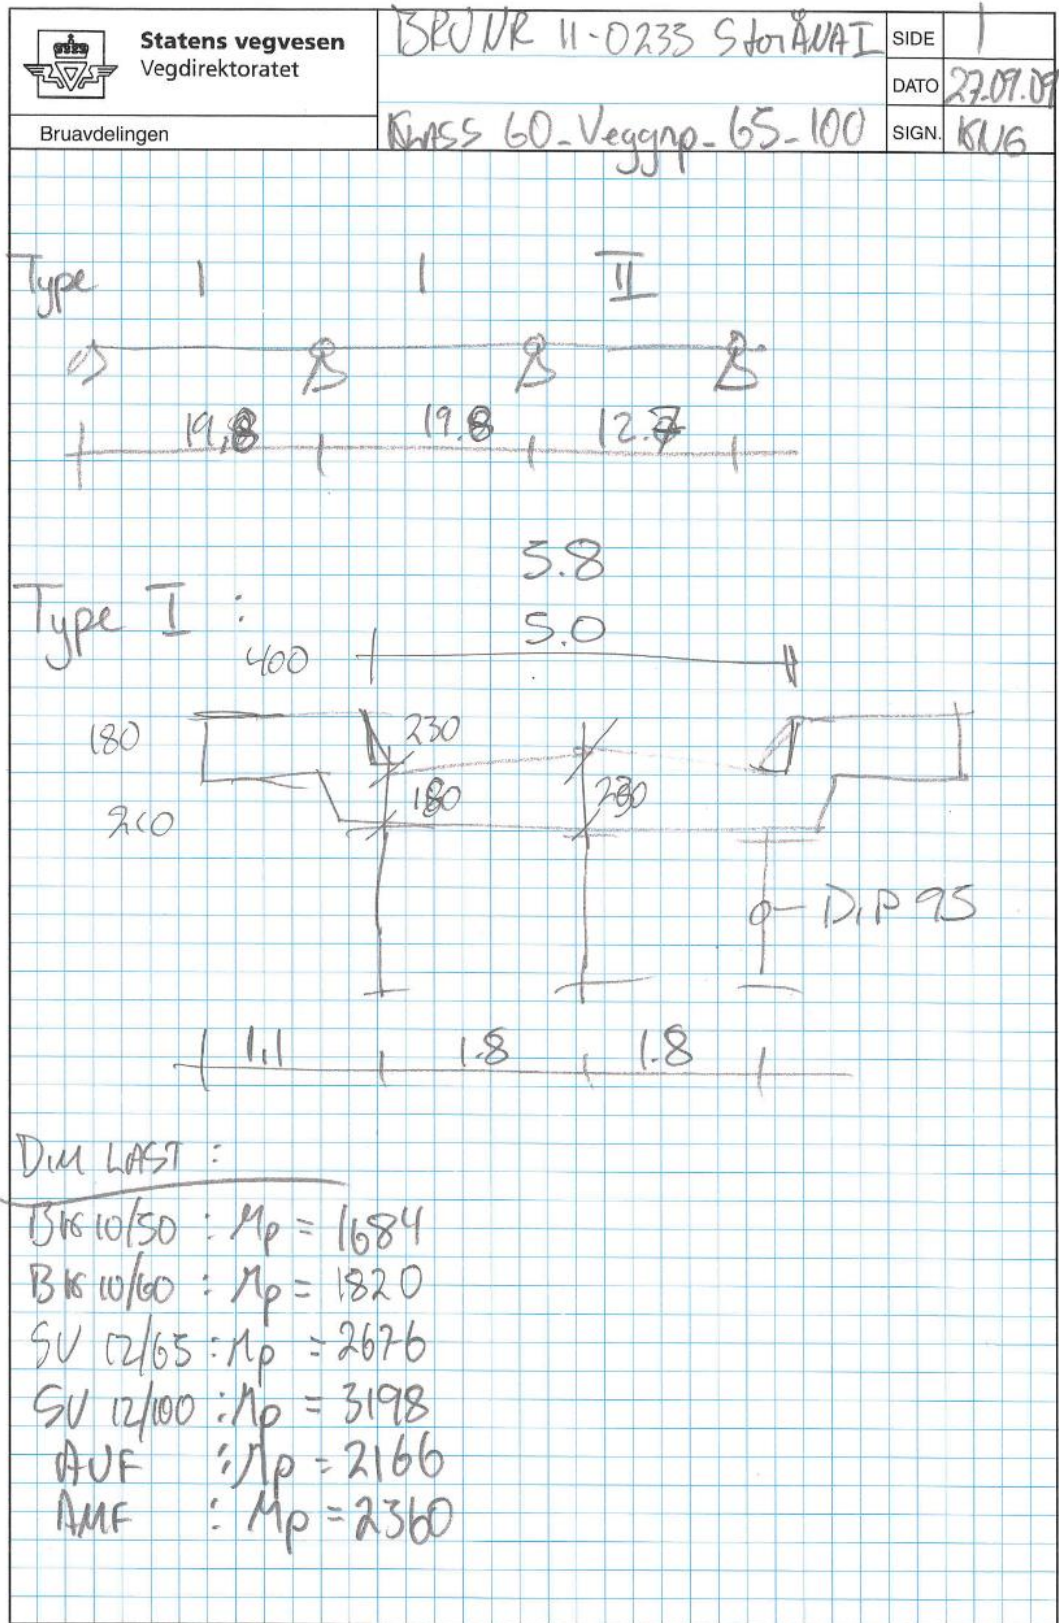 Statens vegvesen
Vegdirektoratet
Bruavdelingen
BRU NR 11-0233 StorÅNA I
Klass 60-Veggrp-65-100
SIDE 1
DATO 27.09.09
SIGN. KNG
Type I I II
19,8 19.8 12.7
5.8
Type I :
5.0
400
180 230
180 280
210
DIP 95
1,1 1.8 1.8
DIM LAST :
Bk 10/50 : Mp = 1684
Bk 10/60 : Mp = 1820
SV 12/65 : Mp = 2676
SV 12/100 : Mp = 3198
AUF : Mp = 2166
AMF : Mp = 2360